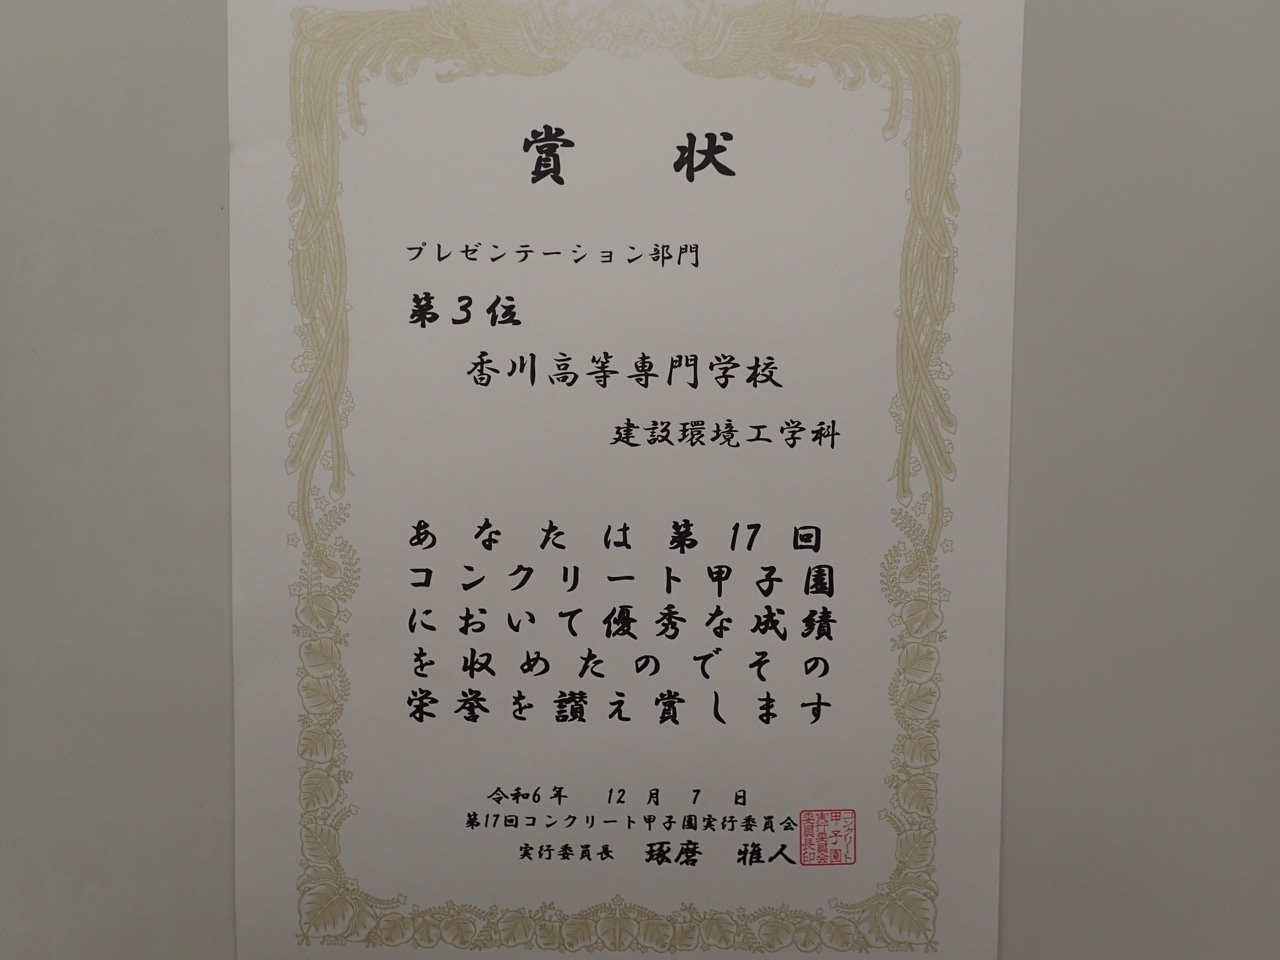 賞状
プレゼンテーション部門
第3位
香川高等専門学校
建設環境工学科
あなたは第17回
コンクリート甲子園
において優秀な成績
を収めたのでその
栄誉を讃え賞します
令和6年 12月 7日
第17回コンクリート甲子園実行委員会
実行委員長 琢磨 雅人
コンクリート
甲子園
実行委員会
委員長印